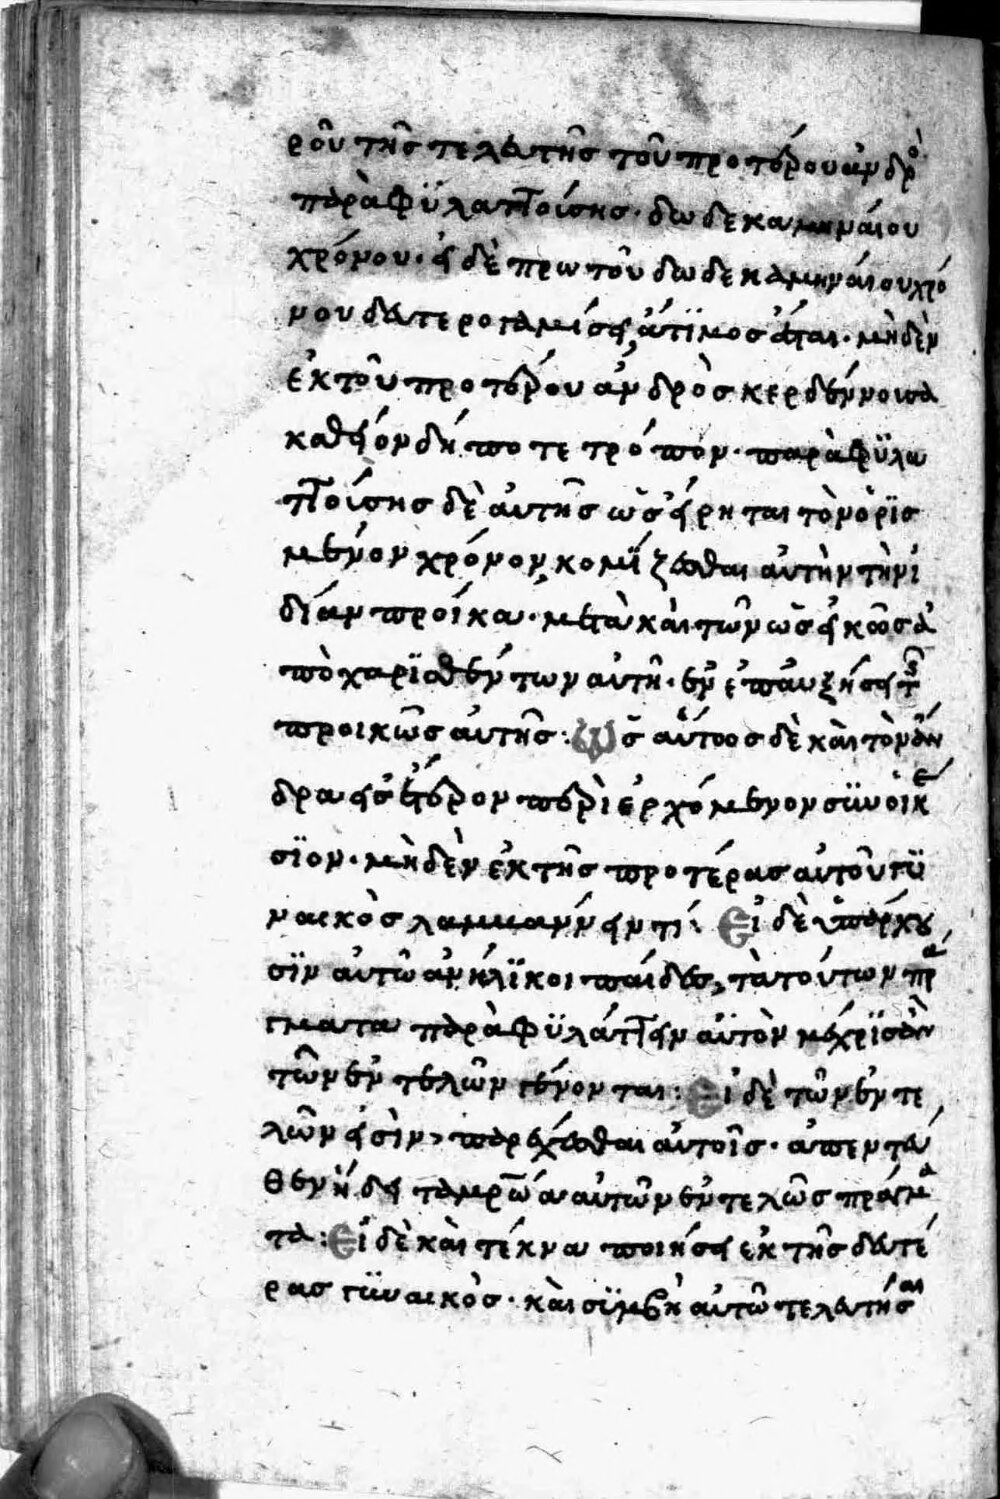 ροῦ τῆς τελευτῆς τοῦ προτέρου ἀνδρὸ
παραφϋλαττούσης· δωδεκαμηναίου
χρόνου· εἰ δὲ πρὼ τοῦ δωδεκαμηναίου χρό
νου δευτερογαμίσει, ἄτϊμος ἔσται· μὴδὲν
ἐκ τοῦ προτέρου ἀνδρὸς κερδένουσα
καθ' εἱονδήποτε τρόπον· παραφϋλα
ττούσης δὲ ἀυτῆς ὡς εἴρηται τὸν ὁρϊσ
μένον χρόνον, κομΐζεσθαι ἀυτὴν τὴν ἰ
δίαν προίκα· μετὰ καὶ τῶν ὡς εἰκὸς ἀ
πὸ χαρϊσθέντων αὐτῆ· ἐν ἐπαυξήσει τῆς
προικῶς ἀυτῆς: Ὡς αὔτος δὲ καὶ τὸν ἄν
δρα εἰς ἕτερον περὶερχόμενον σϋνοικέ
σϊον· μὴδὲν ἐκ τῆς προτέρας αὐτοῦ γϋ
ναικὸς λαμβάννειν τί: Εἰ δὲ ὑπάρχου
σϊν αὐτῶ ἀνήλϊκοι παίδες, τὰ τούτων πρά
γματα παραφϋλάττειν αὐτὸν μέχρϊς ἂν
τῶν ἐντελῶν γένονται: Εἰ δὲ τῶν ἐντε
λῶν εἰσὶν, παρέχεσθαι αὐτοῖς· ἀπεντεύ
θεν ἤδει τὰ μρῶα αυτῶν ἐντελῶς πράγμα
τα: Εἰ δὲ καὶ τέκνα ποιήσει ἐκ τῆς δευτέ
ρας γϋναικός· καὶ σϋμβῆ αὐτῶ τελευτῆσαι